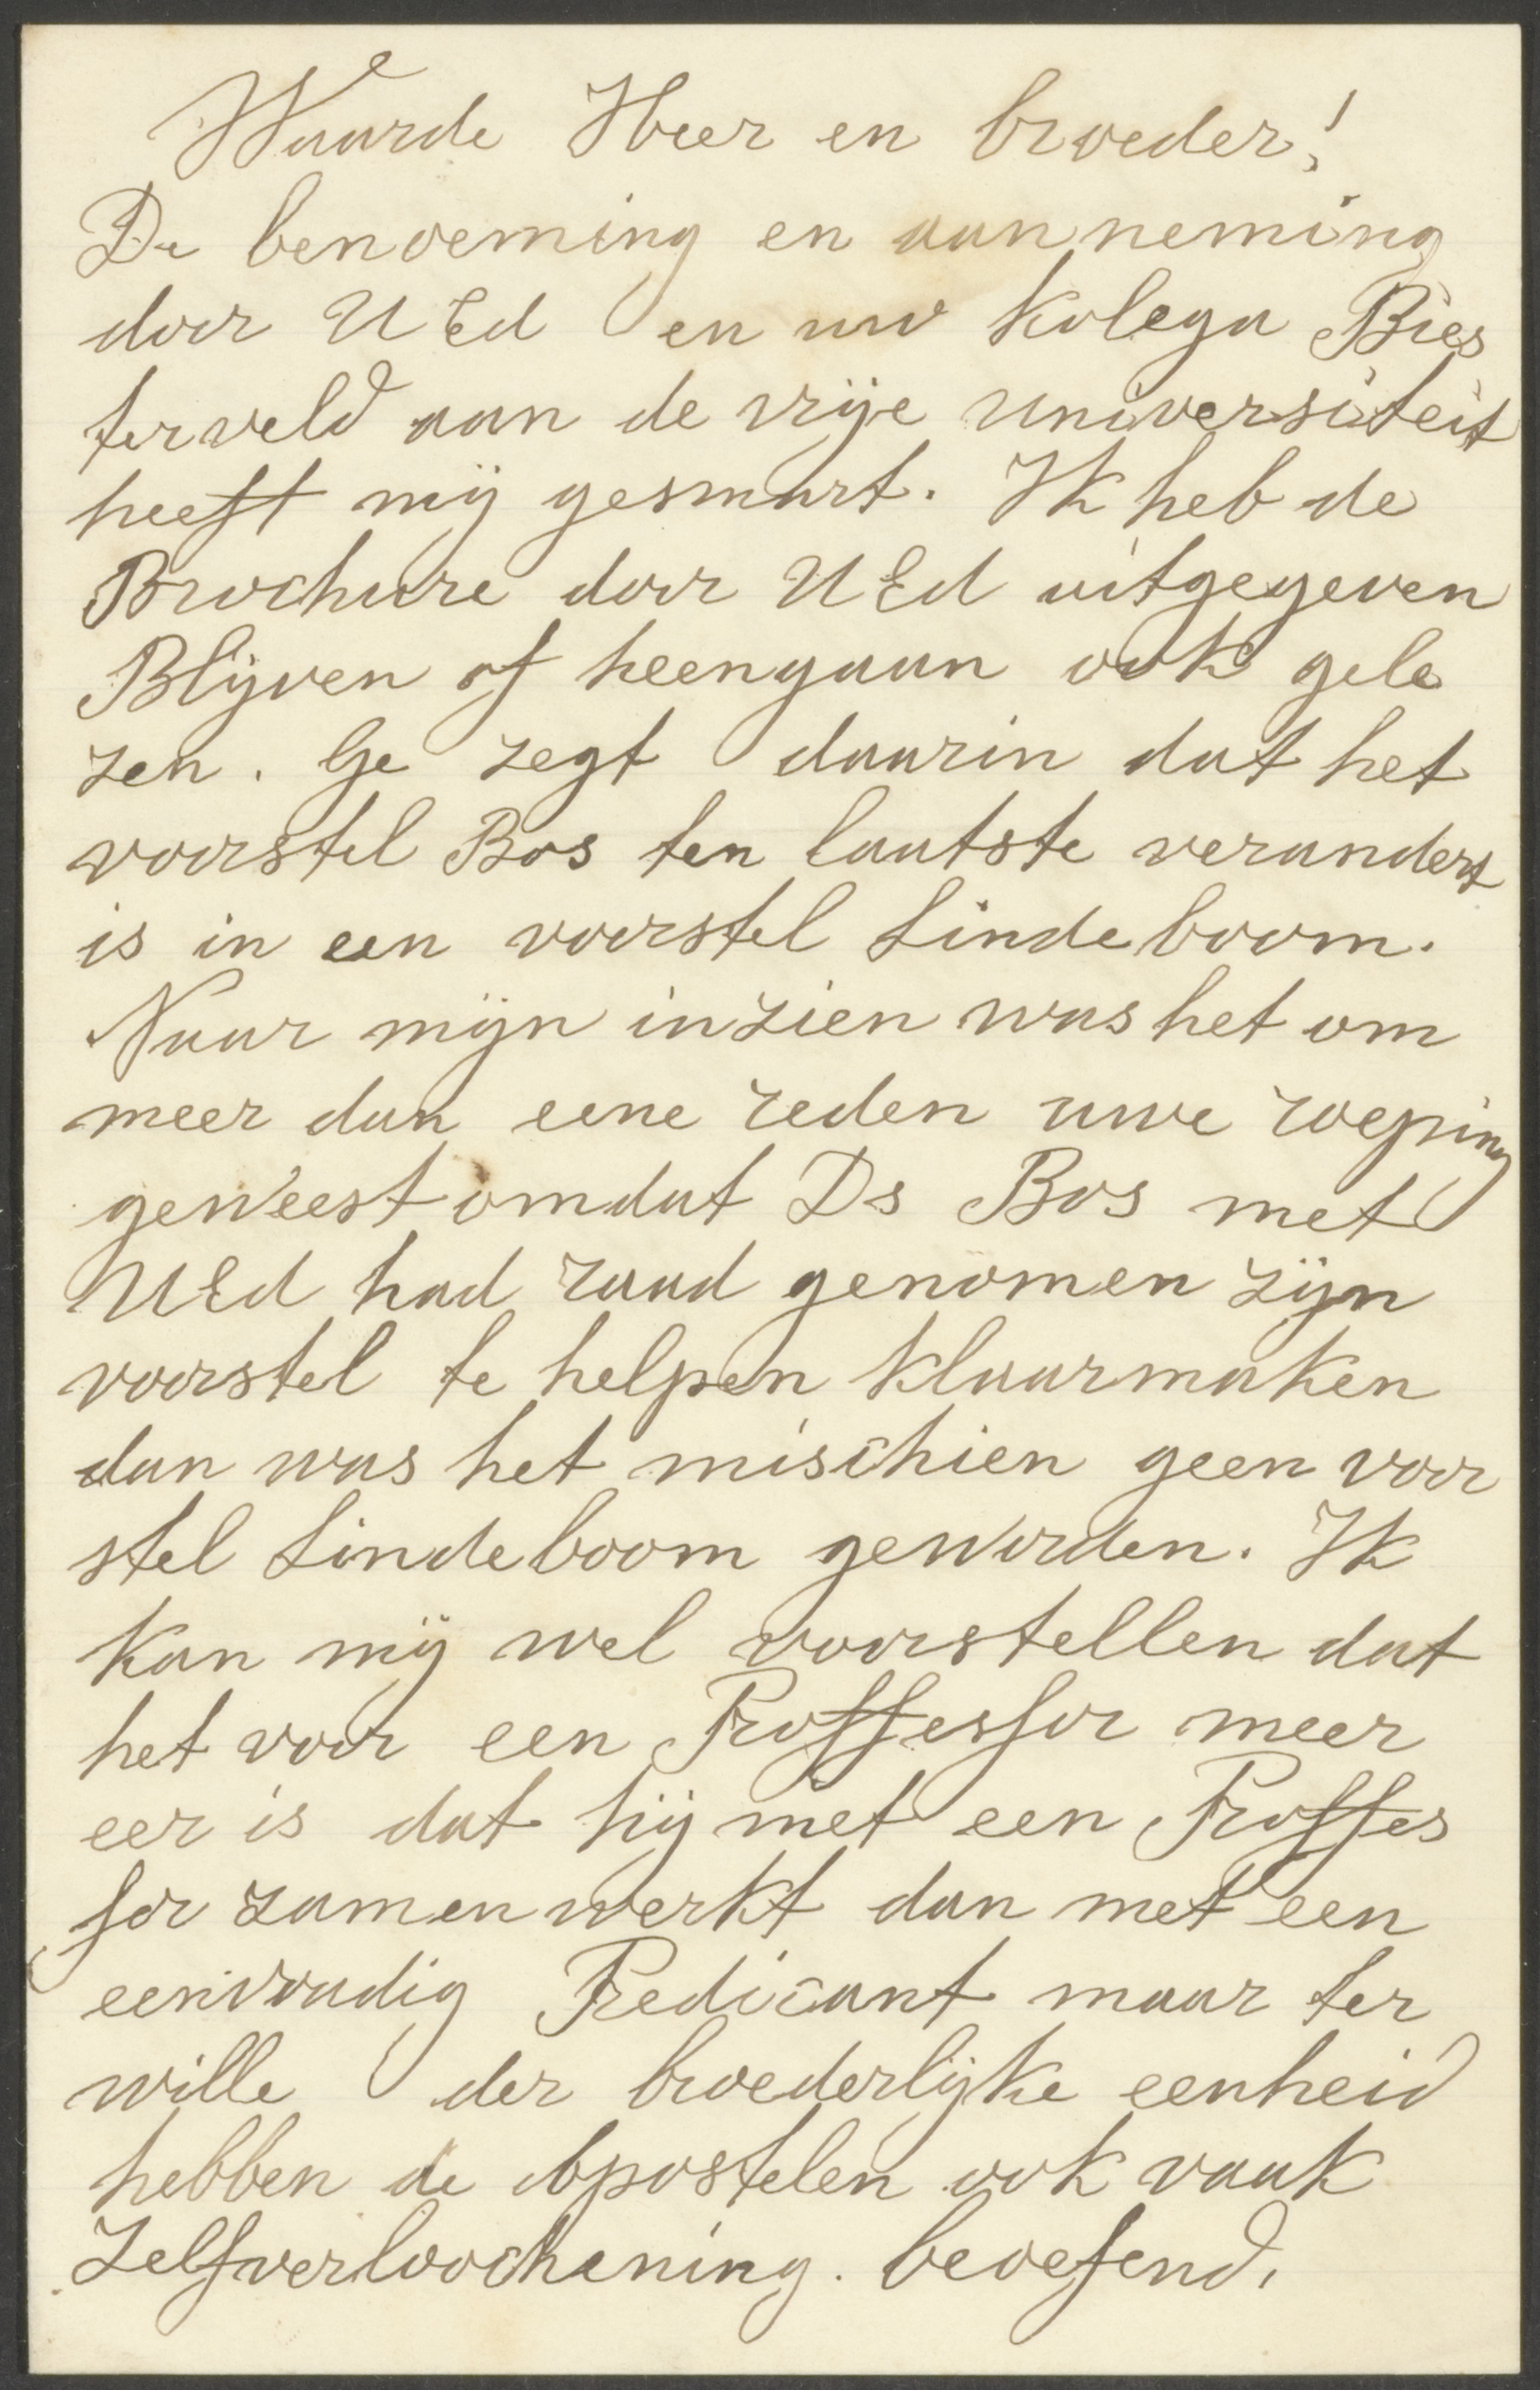 Waarde Heer en broeder!
De benoeming en aanneming
door UEd en uw kolega Bies
terveld aan de vrije universiteit
heeft mij gesmart. Ik heb de
Brochure door UEd uitgegeven
Blijven of heengaan ook gele
zen. Ge zegt daarin dat het
voorstel Bos ten laatste verandert
is in een voorstel Lindeboom.
Naar mijn inzien was het om
meer dan eene reden uwe roeping
geweest omdat Ds Bos met
UEd had raad genomen zijn
voorstel te helpen klaarmaken
dan was het mischien geen voor
stel Lindeboom geworden. Ik
kan mij wel voorstellen dat
het voor een Proffessor meer
eer is dat hij met een Proffes
sor zamenwerkt dan met een
eenvoudig Predicant maar ter
wille der broederlijke eenheid
hebben de Apostelen ook vaak
Zelfverloochening. beoefend.